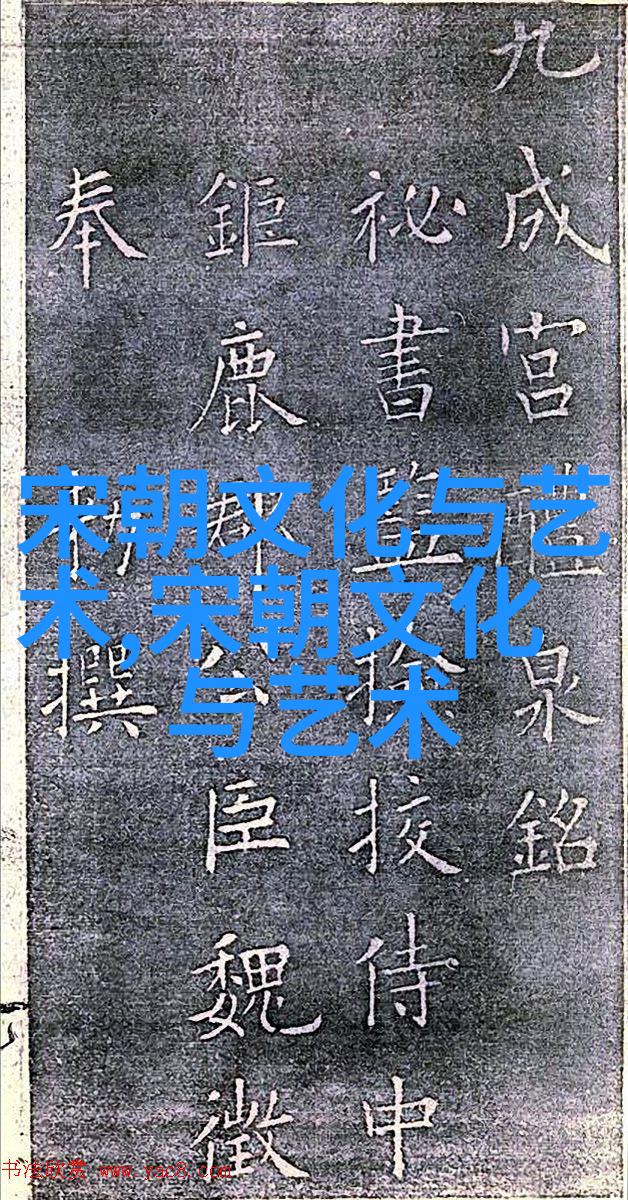 九成宫醴泉銘
祕書監撿挍侍中
鉅鹿郡公臣魏徵
奉勅撰
宋朝文化与艺
术,宋朝文化
与艺术
书法欣赏 www.yac8.com